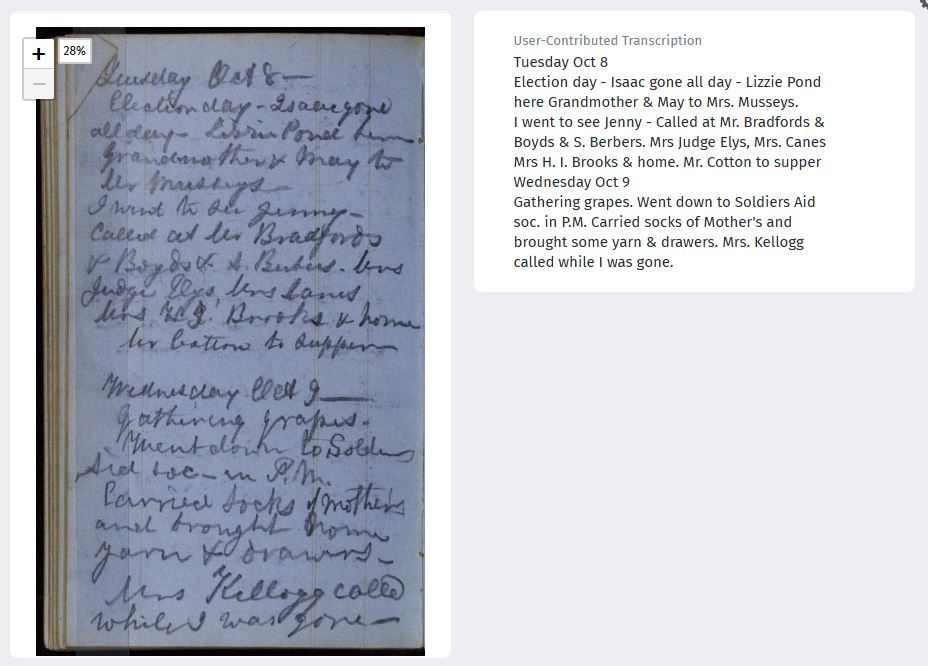 +
28%
−
Tuesday Oct 8 —
Election day - Isaac gone
all day - Lizzie Pond here.
Grandmother & May to
Mr Musseys —
I went to see Jenny -
Called at Mr Bradfords
& Boyds & S. Berbers. Mrs
Judge Elys, Mrs Canes
Mrs H. I. Brooks & home
Mr Cotton to supper —
Wednesday Oct 9 —
Gathering grapes -
Went down to Soldiers
Aid soc - in P.M.
Carried socks of Mother's
and brought home
yarn & drawers -
Mrs Kellogg called
while I was gone —
User-Contributed Transcription
Tuesday Oct 8
Election day - Isaac gone all day - Lizzie Pond
here Grandmother & May to Mrs. Musseys.
I went to see Jenny - Called at Mr. Bradfords &
Boyds & S. Berbers. Mrs Judge Elys, Mrs. Canes
Mrs H. I. Brooks & home. Mr. Cotton to supper
Wednesday Oct 9
Gathering grapes. Went down to Soldiers Aid
soc. in P.M. Carried socks of Mother's and
brought some yarn & drawers. Mrs. Kellogg
called while I was gone.